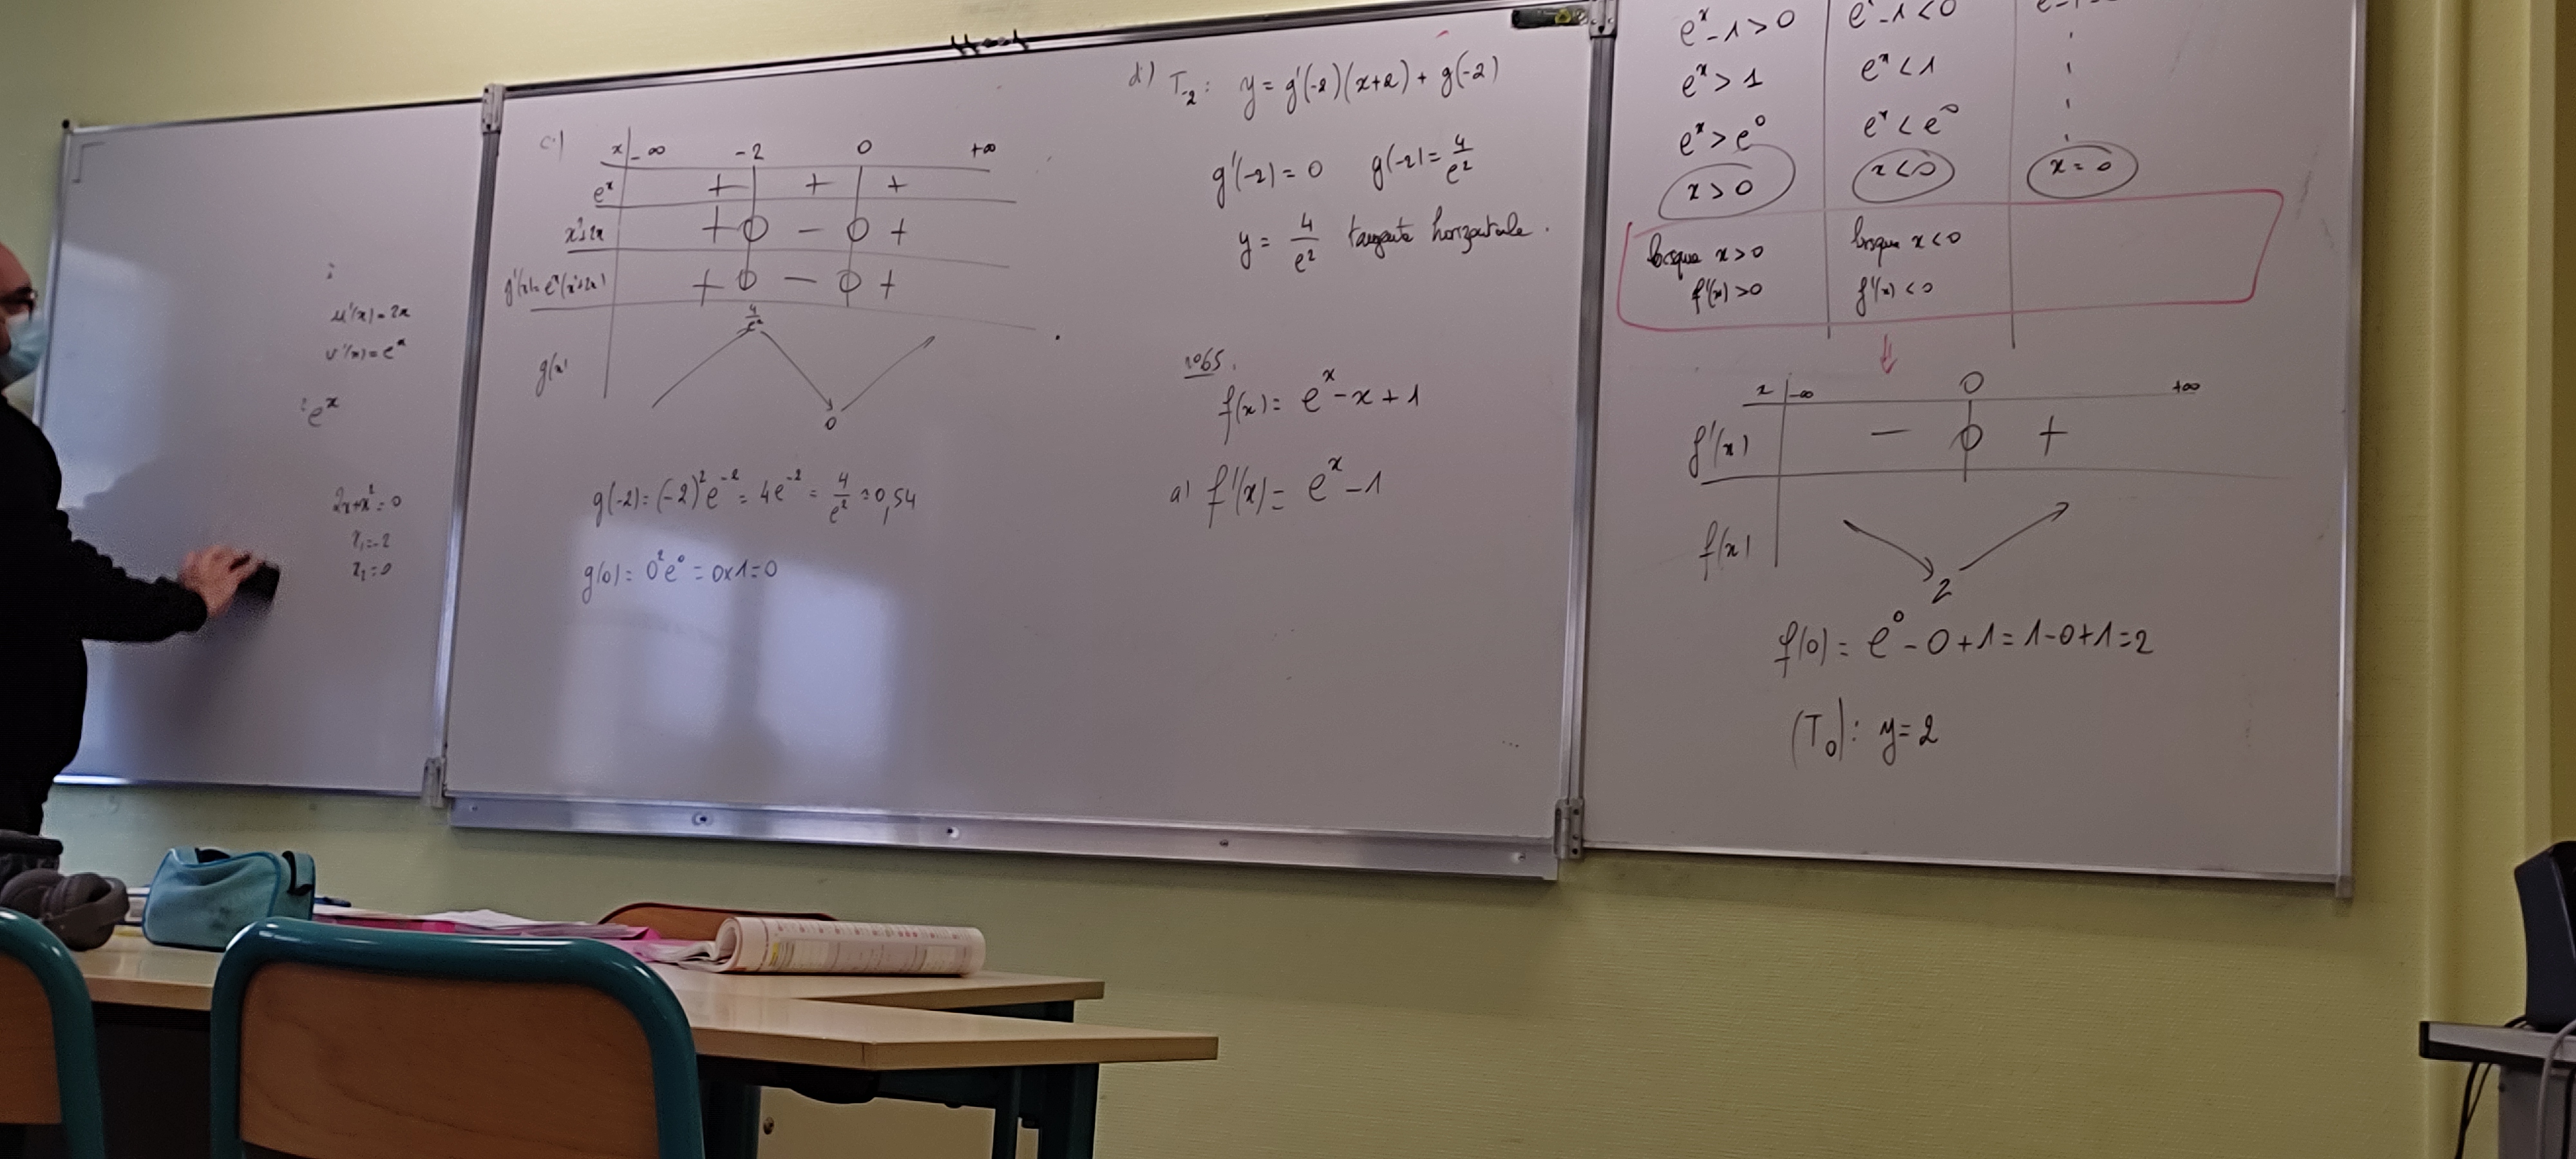 u'(x) = 2x
v'(x) = e^x
e^x
2x+x² = 0
x₁ = -2
x₂ = 0
c)
x | -∞ -2 0 +∞
e^x + + +
x²+2x + 0 - 0 +
g'(x) = e^x(x²+2x) + 0 - 0 +
4/e²
g(x)
0
g(-2) = (-2)² e^-2 = 4e^-2 = 4/e² ≈ 0,54
g(0) = 0² e^0 = 0x1 = 0
d) T₋₂ : y = g'(-2)(x+2) + g(-2)
g'(-2) = 0 g(-2) = 4/e²
y = 4/e² tangente horizontale.
n°65.
f(x) = e^x - x + 1
a) f'(x) = e^x - 1
e^x - 1 > 0 e^x - 1 < 0
e^x > 1 e^x < 1
e^x > e^0 e^x < e^0
x > 0 x < 0 x = 0
lorsque x > 0 lorsque x < 0
f'(x) > 0 f'(x) < 0
x | -∞ 0 +∞
f'(x) - 0 +
f(x)
2
f(0) = e^0 - 0 + 1 = 1 - 0 + 1 = 2
(T₀) : y = 2